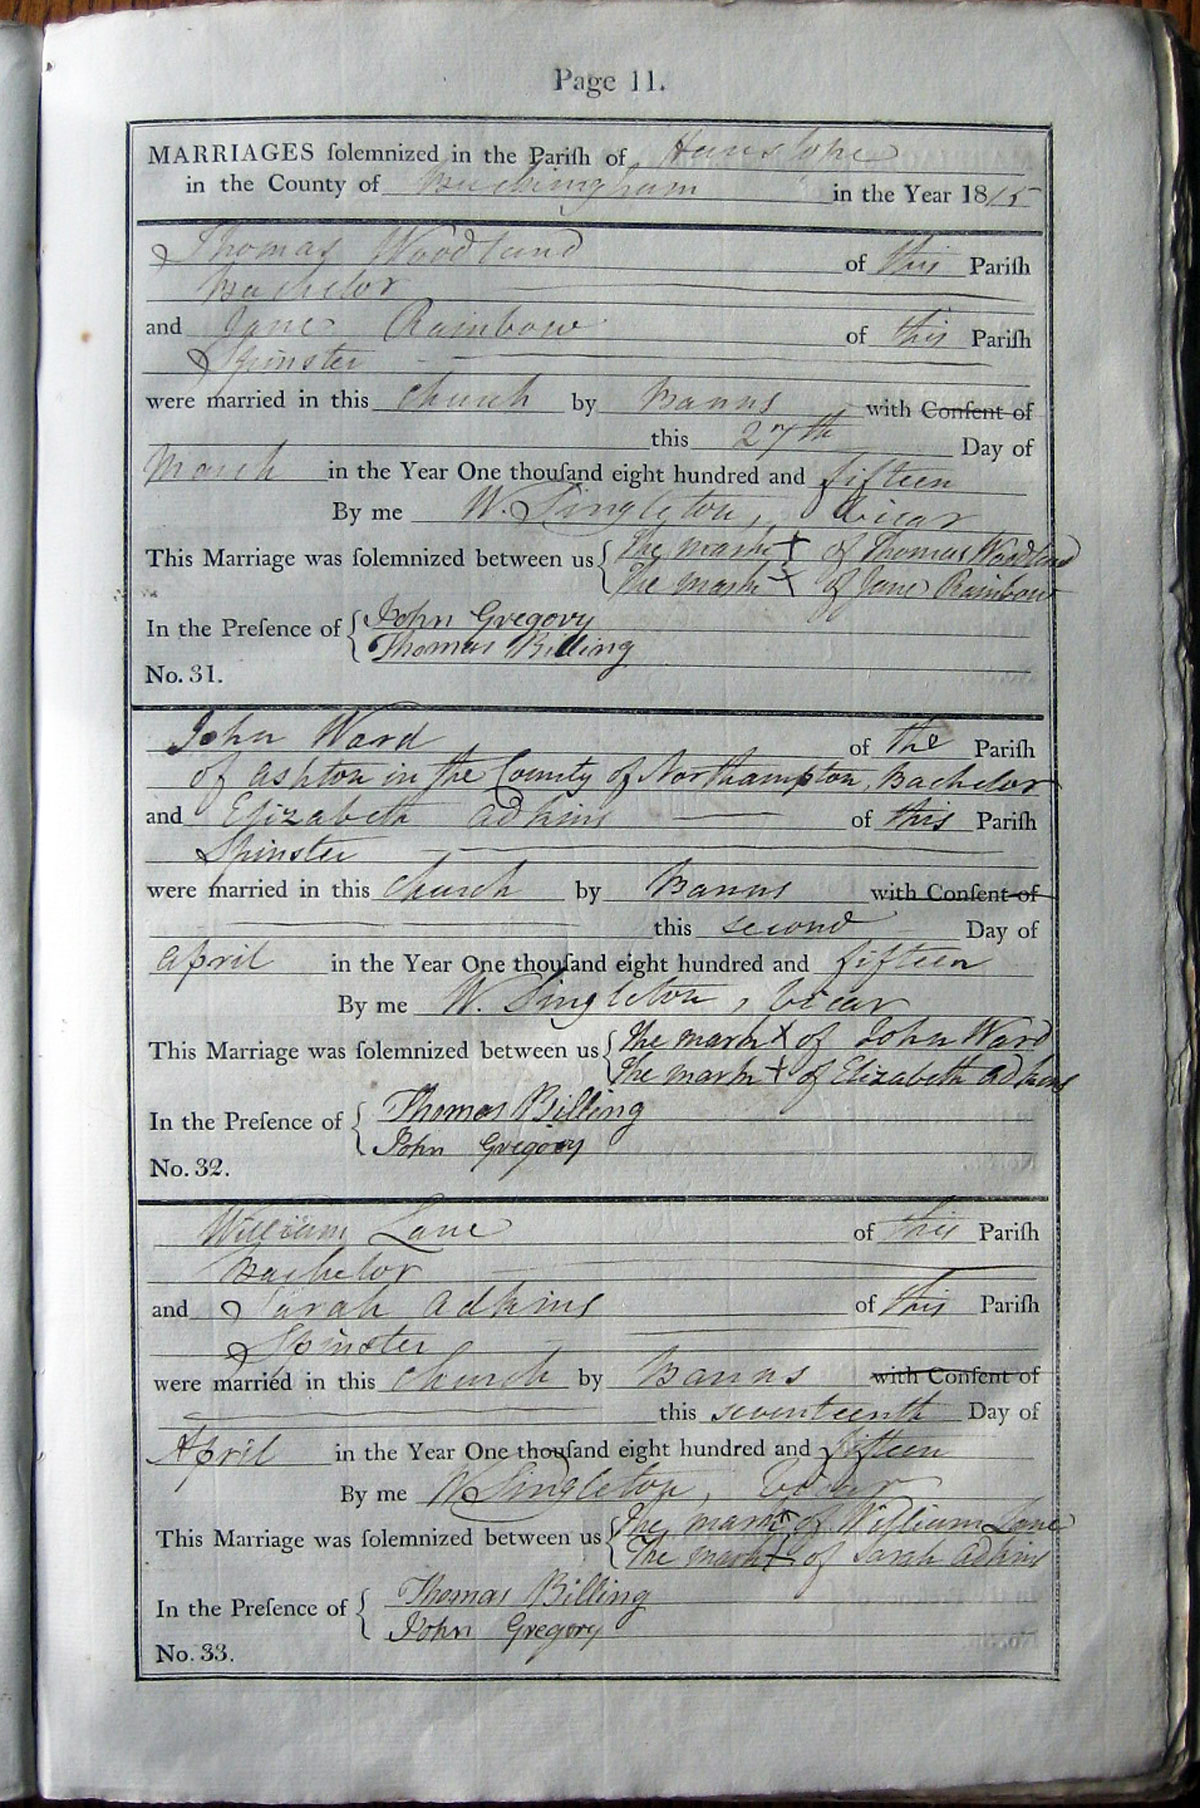 Page 11.
MARRIAGES ſolemnized in the Pariſh of Hanslope
in the County of Buckingham in the Year 1815
Thomas Woodland of this Pariſh
Bachelor
and Jane Rainbow of this Pariſh
Spinster
were married in this Church by Banns with Conſent of
this 27th Day of
March in the Year One thouſand eight hundred and fifteen
By me W. Singleton, Vicar
This Marriage was ſolemnized between us { The mark X of Thomas Woodland
The mark X of Jane Rainbow
In the Preſence of { John Gregory
Thomas Billing
No. 31.
John Ward of the Pariſh
of Ashton in the County of Northampton, Bachelor
and Elizabeth Adkins of this Pariſh
Spinster
were married in this Church by Banns with Conſent of
this second Day of
April in the Year One thouſand eight hundred and fifteen
By me W. Singleton, Vicar
This Marriage was ſolemnized between us { The mark X of John Ward
The mark X of Elizabeth Adkins
In the Preſence of { Thomas Billing
John Gregory
No. 32.
William Lane of this Pariſh
Bachelor
and Sarah Adkins of this Pariſh
Spinster
were married in this Church by Banns with Conſent of
this seventeenth Day of
April in the Year One thouſand eight hundred and fifteen
By me W Singleton, Vicar
This Marriage was ſolemnized between us { The mark X of William Lane
The mark X of Sarah Adkins
In the Preſence of { Thomas Billing
John Gregory
No. 33.